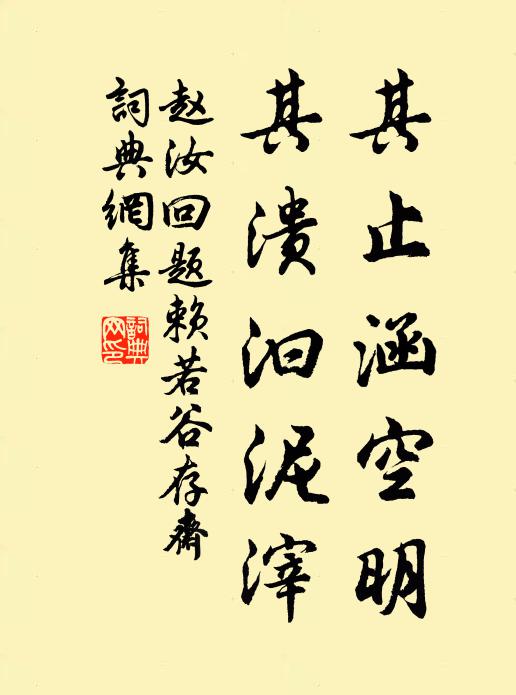 其止涵空明
其溃汩泥滓
赵汝回题赖若谷存齋
詞典網集
詞典网印